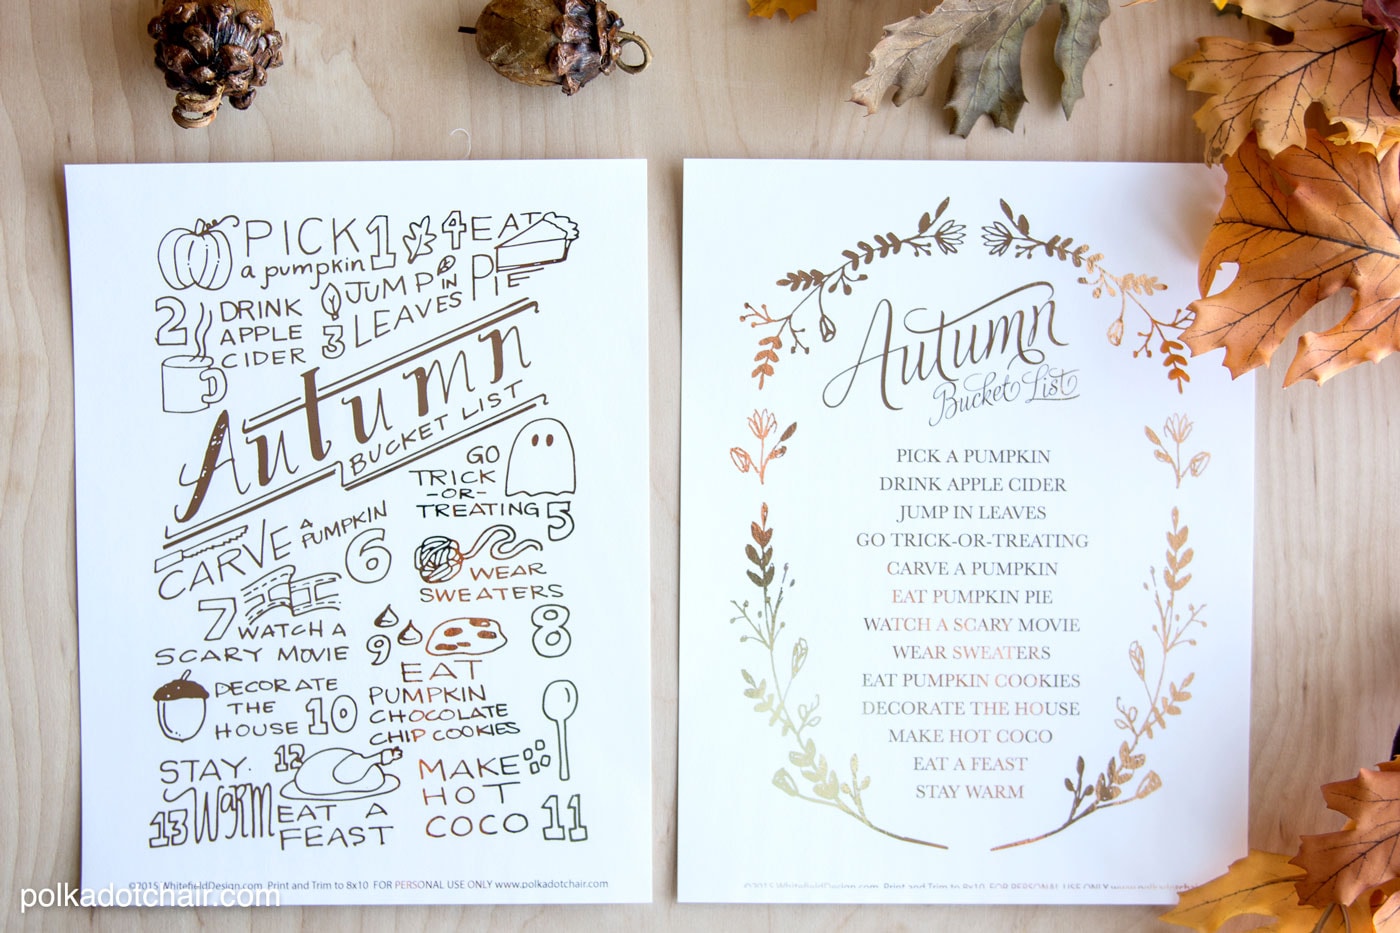 PICK
a pumpkin 1
4 EAT
PIE
2 DRINK
APPLE
CIDER
3 JUMP IN
LEAVES
Autumn
BUCKET LIST
GO
TRICK
-OR-
TREATING 5
CARVE A
PUMPKIN
6
WEAR
SWEATERS
8
7 WATCH A
SCARY MOVIE
9
EAT
PUMPKIN
CHOCOLATE
CHIP COOKIES
DECORATE
THE
HOUSE 10
STAY.
13 Warm
12
EAT A
FEAST
MAKE
HOT
COCO 11
©2015 WhitefieldDesign.com Print and Trim to 8x10 FOR PERSONAL USE ONLY www.polkadotchair.com
Autumn
Bucket List
PICK A PUMPKIN
DRINK APPLE CIDER
JUMP IN LEAVES
GO TRICK-OR-TREATING
CARVE A PUMPKIN
EAT PUMPKIN PIE
WATCH A SCARY MOVIE
WEAR SWEATERS
EAT PUMPKIN COOKIES
DECORATE THE HOUSE
MAKE HOT COCO
EAT A FEAST
STAY WARM
©2015 WhitefieldDesign.com Print and Trim to 8x10 FOR PERSONAL USE ONLY
polkadotchair.com